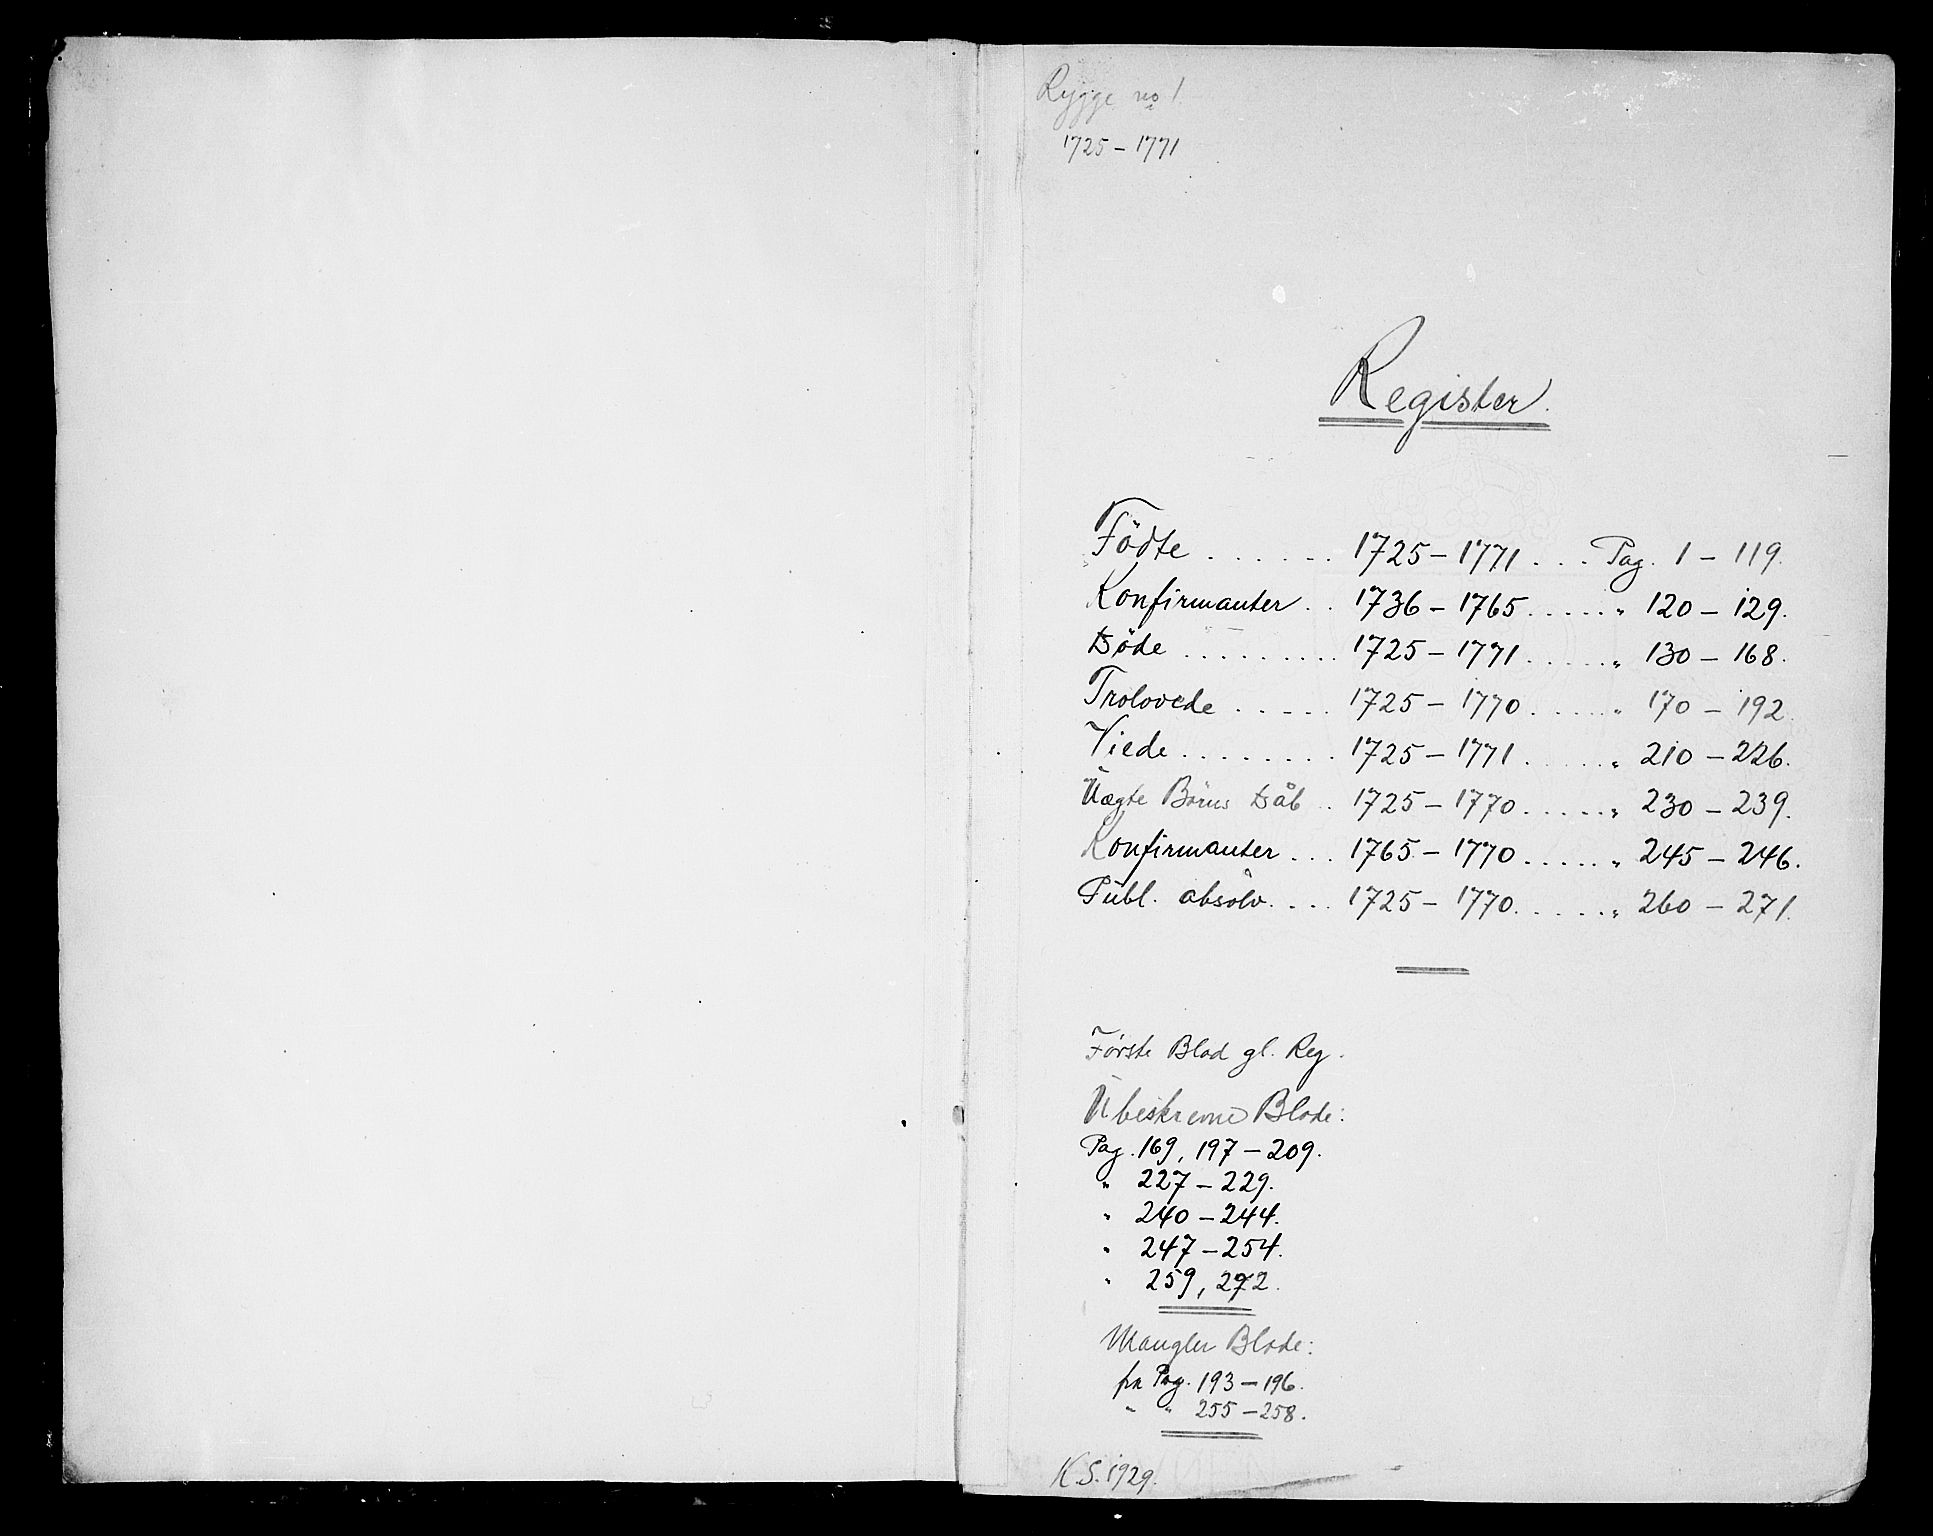 Rygge no 1.
1725 – 1771
Register.
Födte . . . . . . 1725 – 1771 . . . Pag. 1 – 119.
Konfirmanter . . 1736 – 1765 . . . . . " 120 – 129.
Døde . . . . . . . . . 1725 – 1771 . . . . . " 130 – 168.
Trolovede . . . . . 1725 – 1770 . . . . . " 170 – 192.
Viede . . . . . . . . 1725 – 1771 . . . . . " 210 – 226.
Uægte Börns Dåb . . 1725 – 1770 . . . . . " 230 – 239.
Konfirmanter . . . 1765 – 1770 . . . . . " 245 – 246.
Publ. absolv. . . . 1725 – 1770 . . . . . " 260 – 271.
Første Blad gl. Reg.
Ubeskrevne Blade:
Pag. 169, 197 – 209.
" 227 – 229.
" 240 – 244.
" 247 – 254.
" 259, 272.
Mangler Blade:
fra Pag. 193 – 196.
" " 255 – 258.
K.S. 1929.